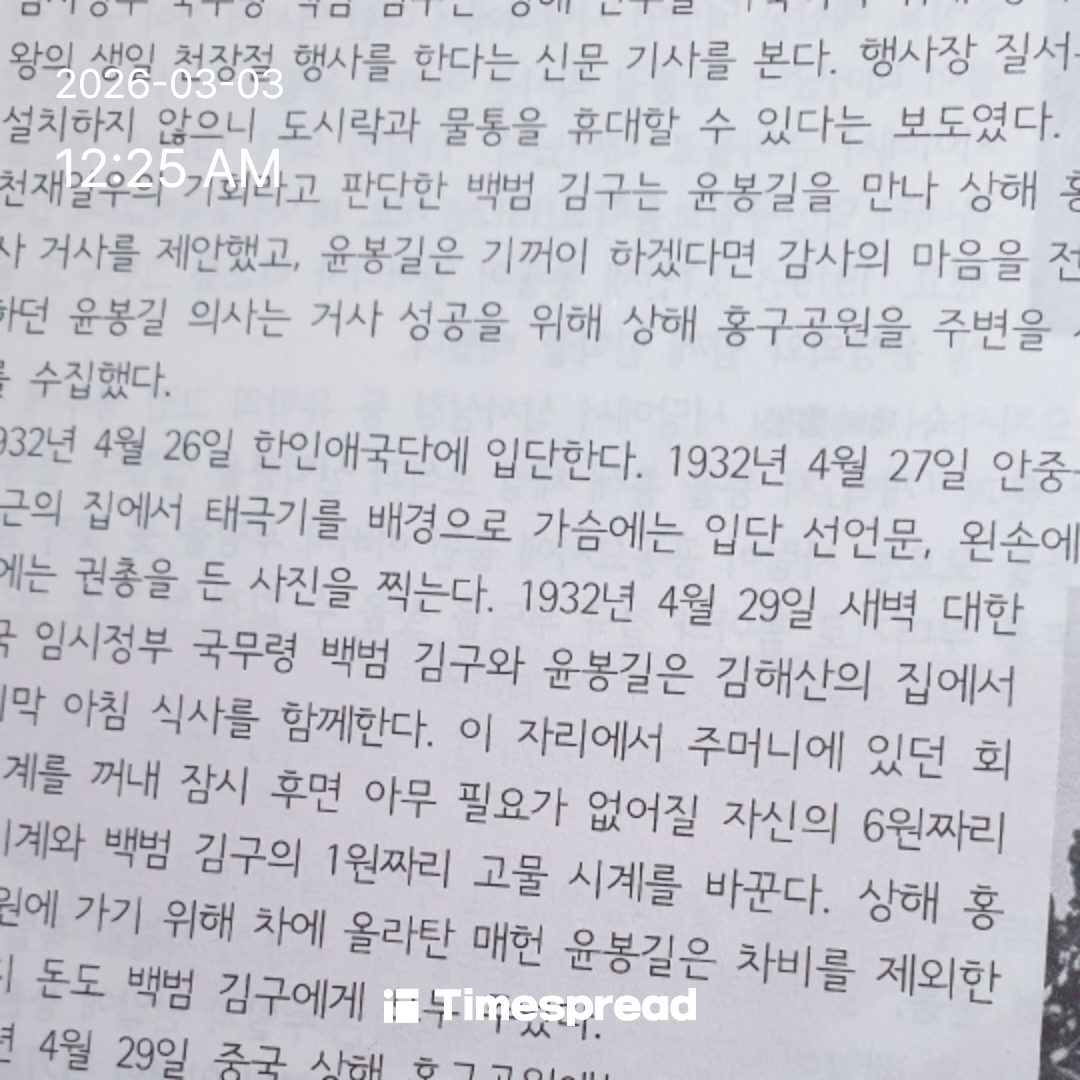 백범 김구는
왕의 생일 천장절 행사를 한다는 신문 기사를 본다. 행사장 질서
2026-03-03
설치하지 않으니 도시락과 물통을 휴대할 수 있다는 보도였다.
12:25 AM
판단한 백범 김구는 윤봉길을 만나 상해
거사를 제안했고, 윤봉길은 기꺼이 하겠다면 감사의 마음을
하던 윤봉길 의사는 거사 성공을 위해 상해 홍구공원을 주변을
를 수집했다.
932년 4월 26일 한인애국단에 입단한다. 1932년 4월 27일 안중
근의 집에서 태극기를 배경으로 가슴에는 입단 선언문, 왼손에
에는 권총을 든 사진을 찍는다. 1932년 4월 29일 새벽 대한
국 임시정부 국무령 백범 김구와 윤봉길은 김해산의 집에서
막 아침 식사를 함께한다. 이 자리에서 주머니에 있던 회
계를 꺼내 잠시 후면 아무 필요가 없어질 자신의 6원짜리
시계와 백범 김구의 1원짜리 고물 시계를 바꾼다. 상해 홍
원에 가기 위해 차에 올라탄 매헌 윤봉길은 차비를 제외한
돈도 백범 김구에게
Timespread
년 4월 29일 중국 상해